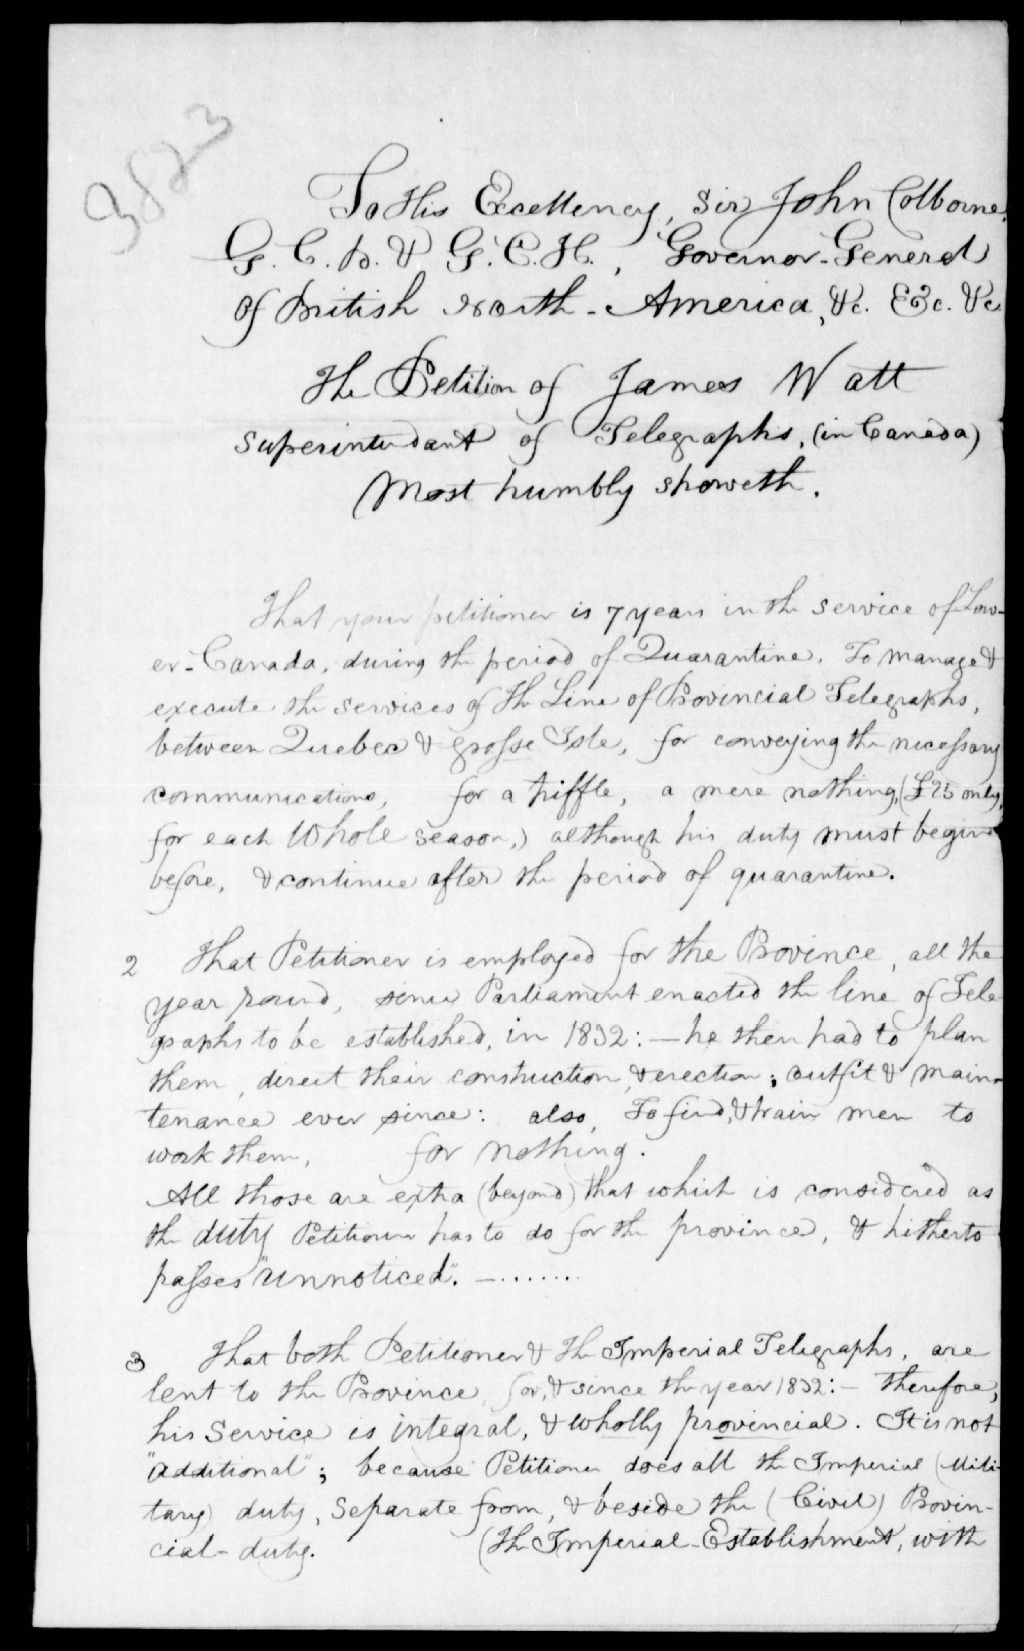 3823
To His Excellency, Sir John Colborne,
G. C. B. & G. C. H., Governor-General
of British North-America, &c. &c. &c.
The Petition of James Watt
Superintendant of Telegraphs, (in Canada)
Most humbly showeth.
That your petitioner is 7 years in the service of Low-
er-Canada, during the period of Quarantine. To manage &
execute the services of the Line of Provincial Telegraphs,
between Quebec & Grosse Isle, for conveying the necessary
communications, for a triffle, a mere nothing, (£25 only,
for each Whole season,) although his duty must begin
before, & continue after the period of quarantine.
2 That Petitioner is employed for the Province, all the
year round, since Parliament enacted the line of Tele-
graphs to be established, in 1832: — he then had to plan
them, direct their construction, & erection; outfit & main-
tenance ever since: also, To find, & train men to
work them, for nothing.
All those are extra (beyond) that which is considered as
the duty Petitioner has to do for the province, & hitherto
passes "unnoticed". — .......
3 That both Petitioner & the Imperial Telegraphs, are
lent to the Province, for, & since the year 1832: — therefore,
his Service is integral, & wholly provincial. It is not
"additional"; because Petitioner does all the Imperial (Mili-
tary) duty, Separate from, & beside the (Civil) Provin-
cial-duty. (The Imperial-Establishment, with